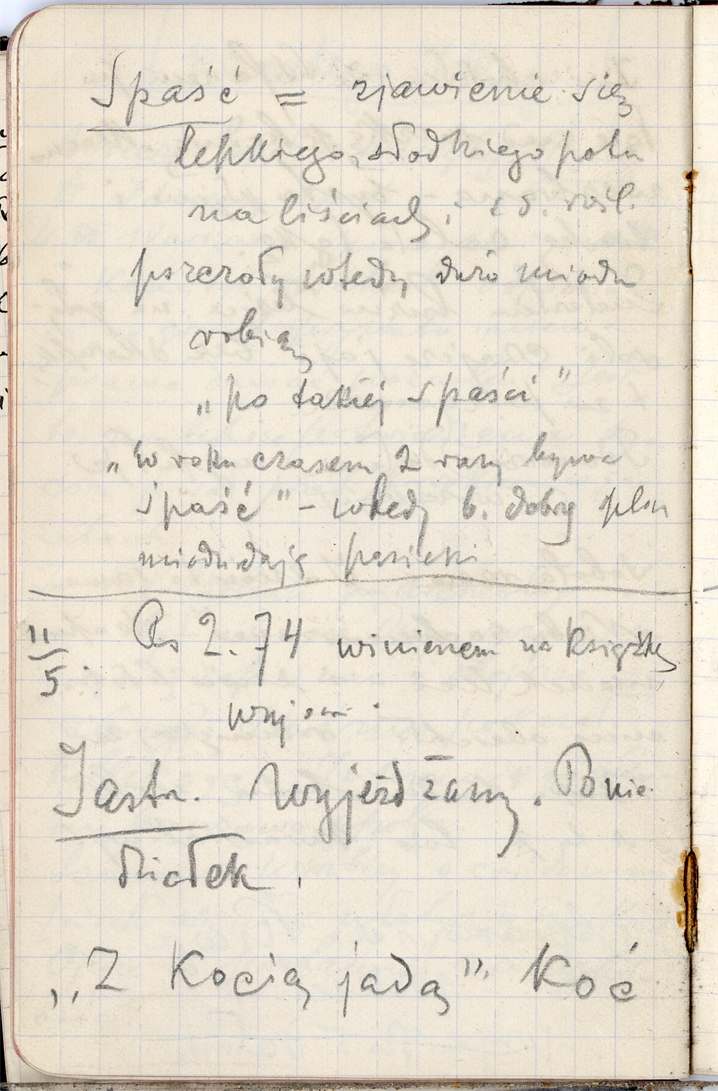 Spaść = zjawienie się
lepkiego, słodkiego potu
na liściach i t d. rośl.
pszczoły wtedy dużo miodu
robią
„po takiej spaści”
„W roku czasem 2 razy bywa
spaść” – wtedy b. dobry plon
miodu dają pasieki
11/5. Rs 2.74 winienem na książkę
Jastr. Wyjeżdżamy. Ponie
działek.
„Z Kocią jadą” Koć